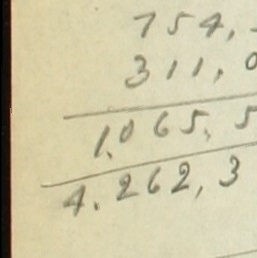 754,
311,0
1.065,5
4.262,3